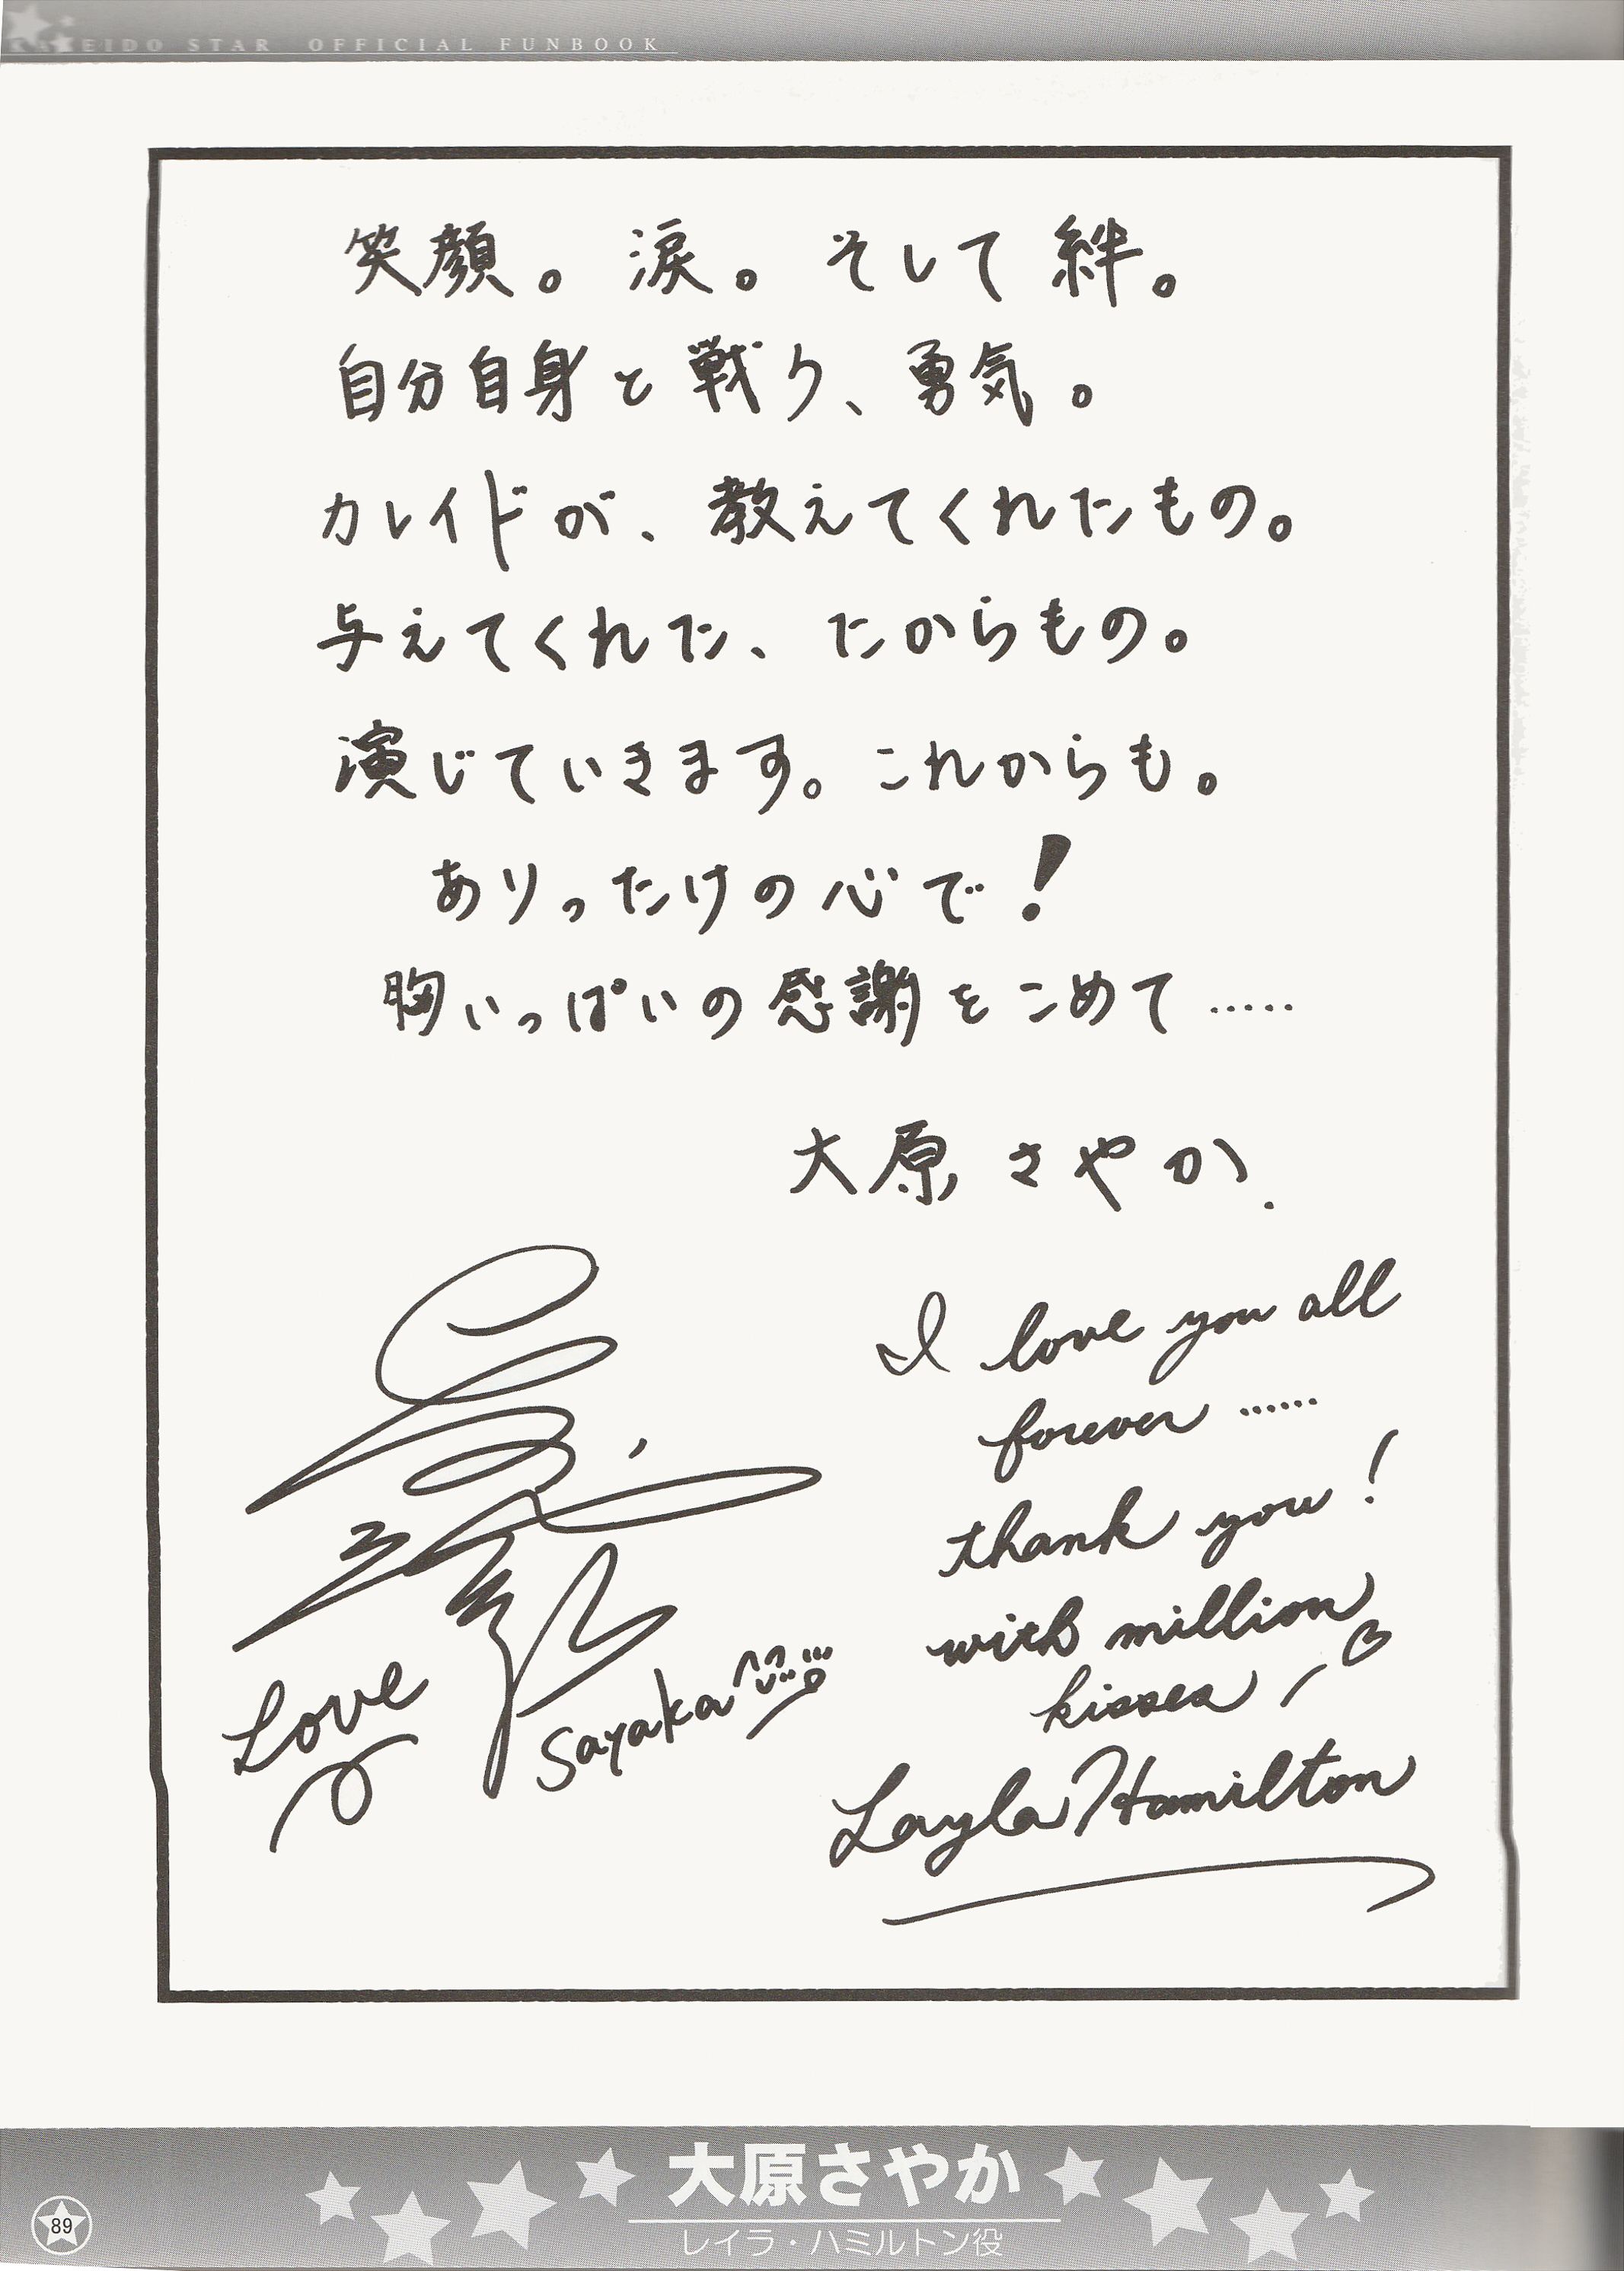 KALEIDO STAR OFFICIAL FUNBOOK
笑顔。涙。そして絆。
自分自身と戦う、勇気。
カレイドが、教えてくれたもの。
与えてくれた、たからもの。
演じていきます。これからも。
ありったけの心で！
胸いっぱいの感謝をこめて……
大原さやか.
I love you all
forever ……
thank you!
with million
kisses
Layla Hamilton
Love
Sayaka
大原さやか
レイラ・ハミルトン役
89